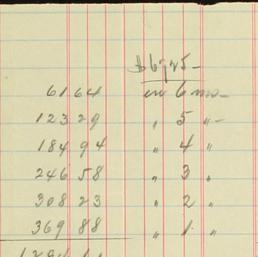 $6925-
6164 in 6 mo-
12329 " 5 "-
18494 " 4 "
24658 " 3 "
30823 " 2 "
36988 " 1 "